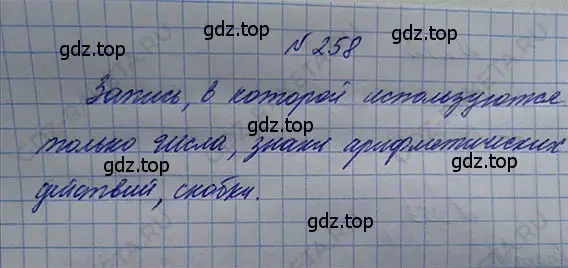 gdz.top gdz.top
N 258
gdz.top gdz.top
Запись, в которой используются
только числа, знаки арифметических
gdz.top gdz.top
действий, скобки.
gdz.top
gdz.top